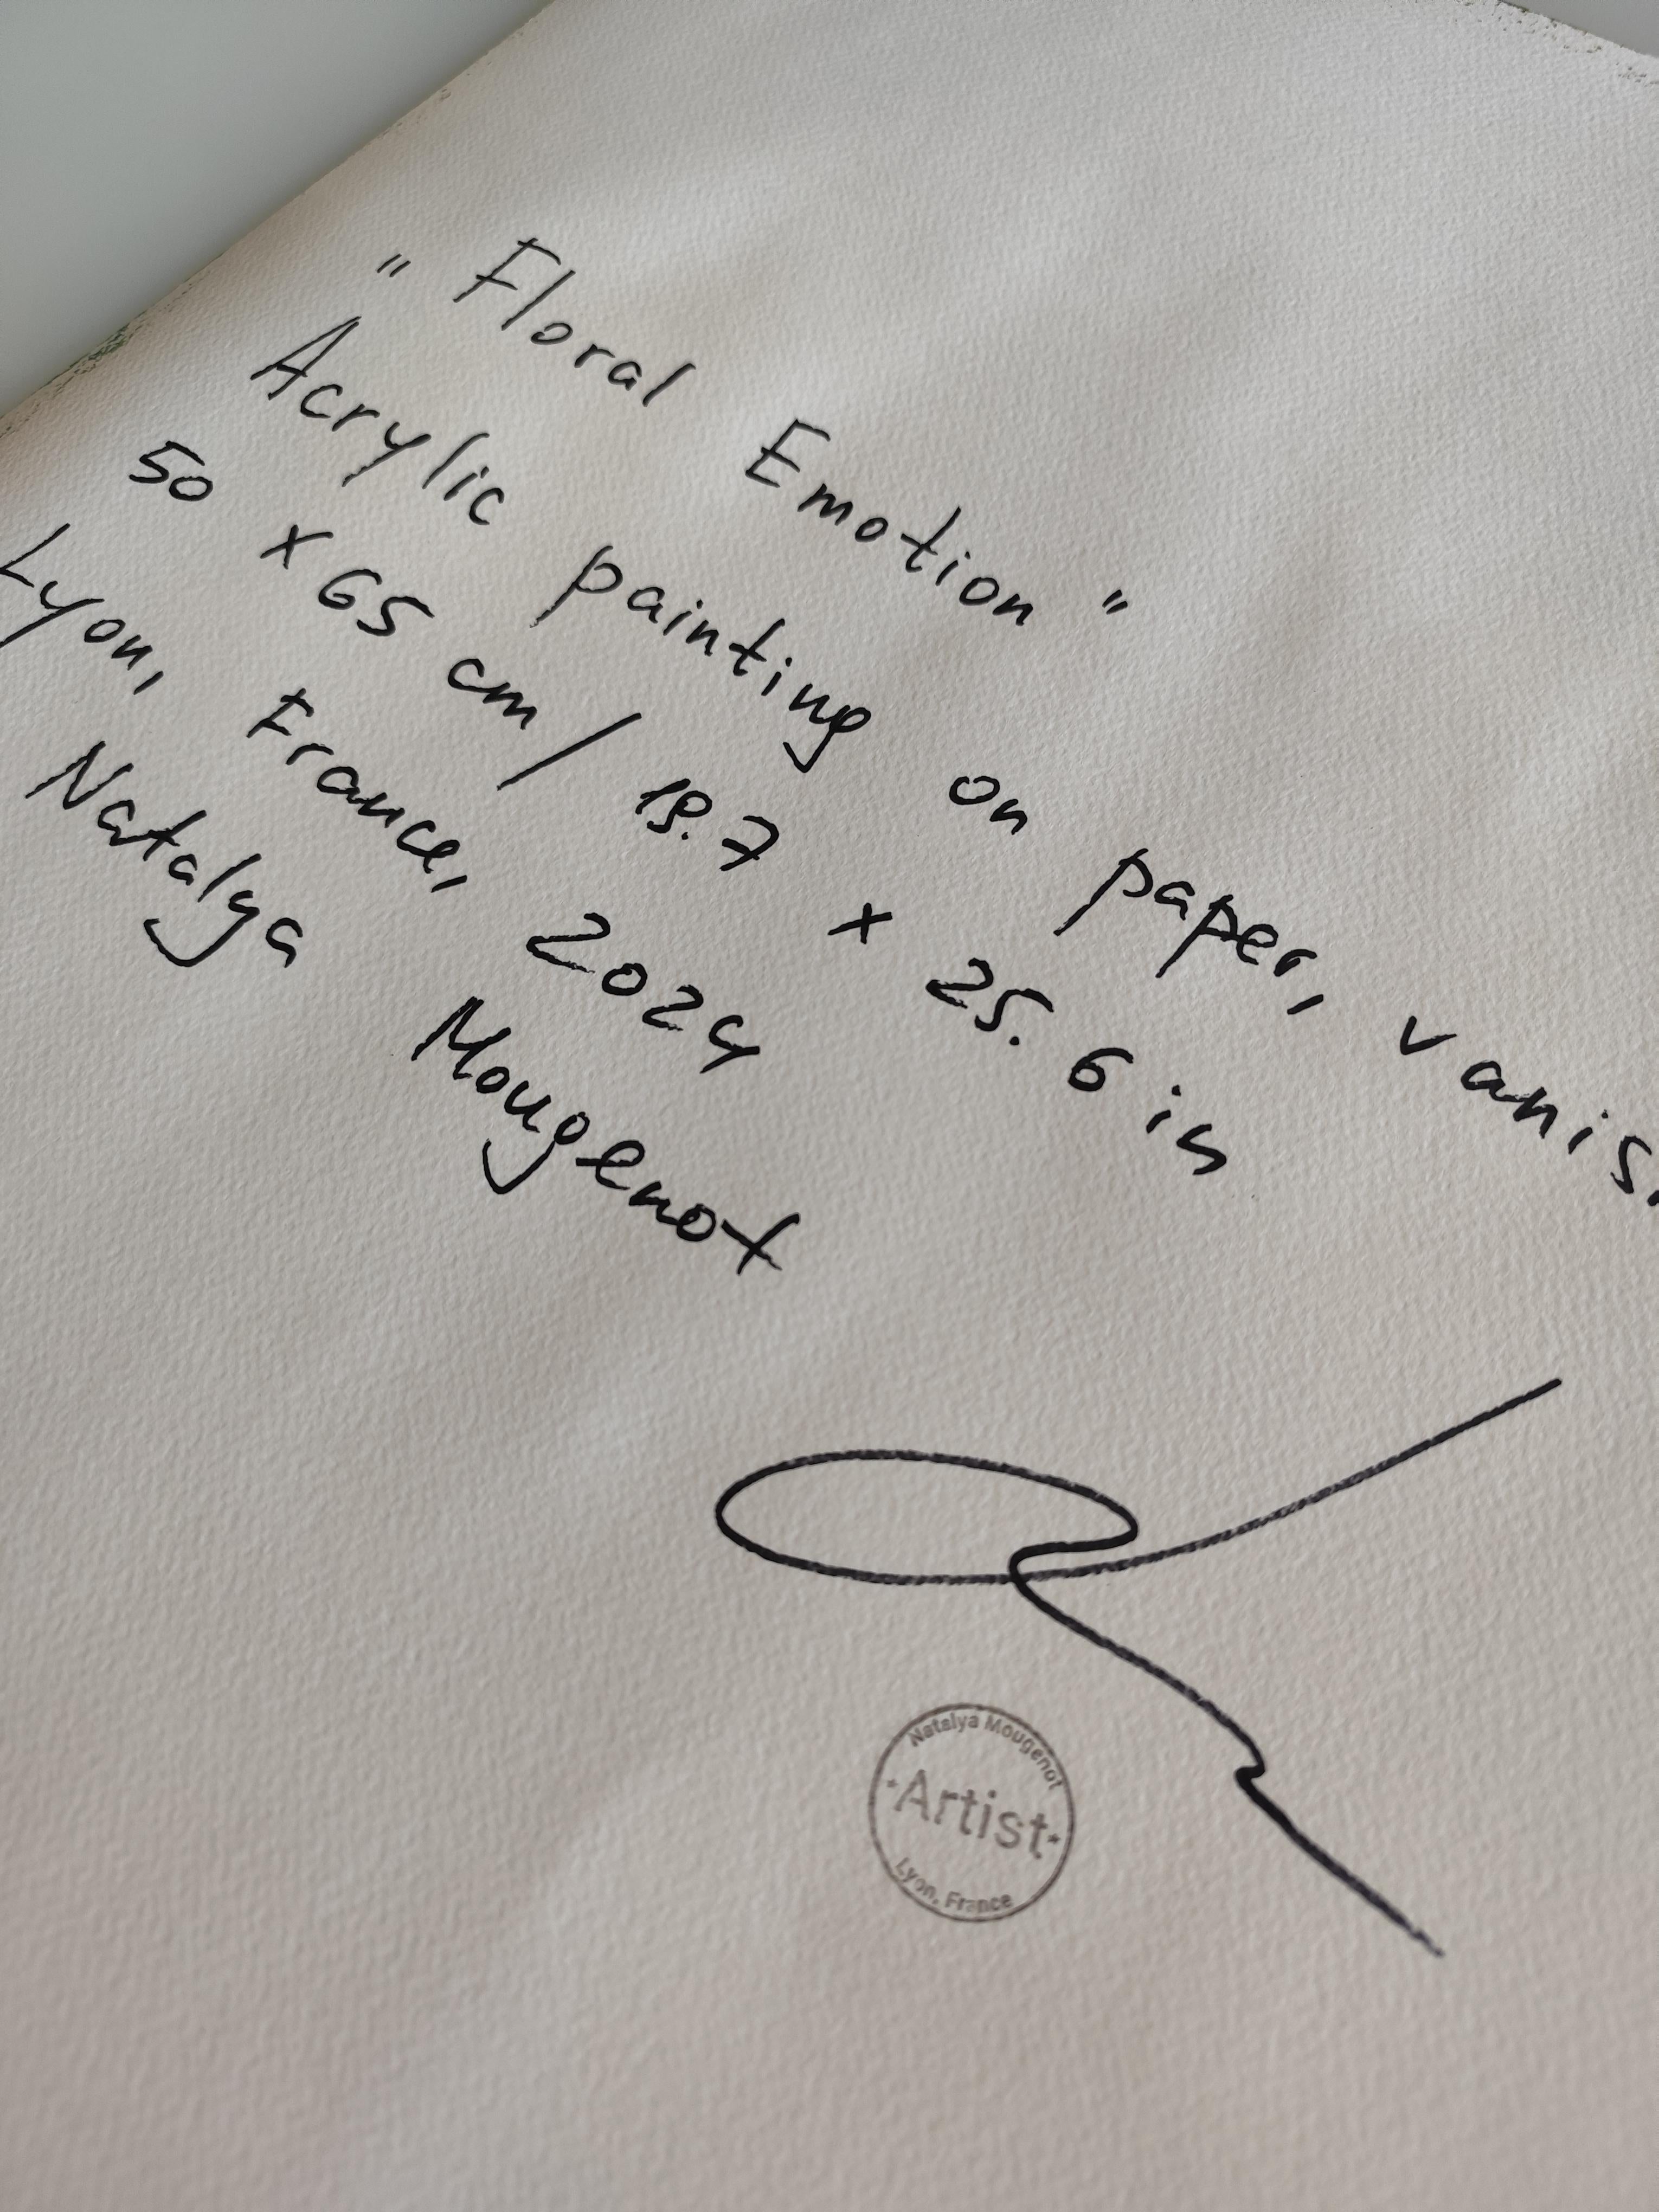 "Floral Emotion"
Acrylic painting on paper, vanis
50 x 65 cm / 19.7 x 25.6 in
Lyon, France, 2024
Natalya Mougenot
Natalya Mougenot
Artist
Lyon, France